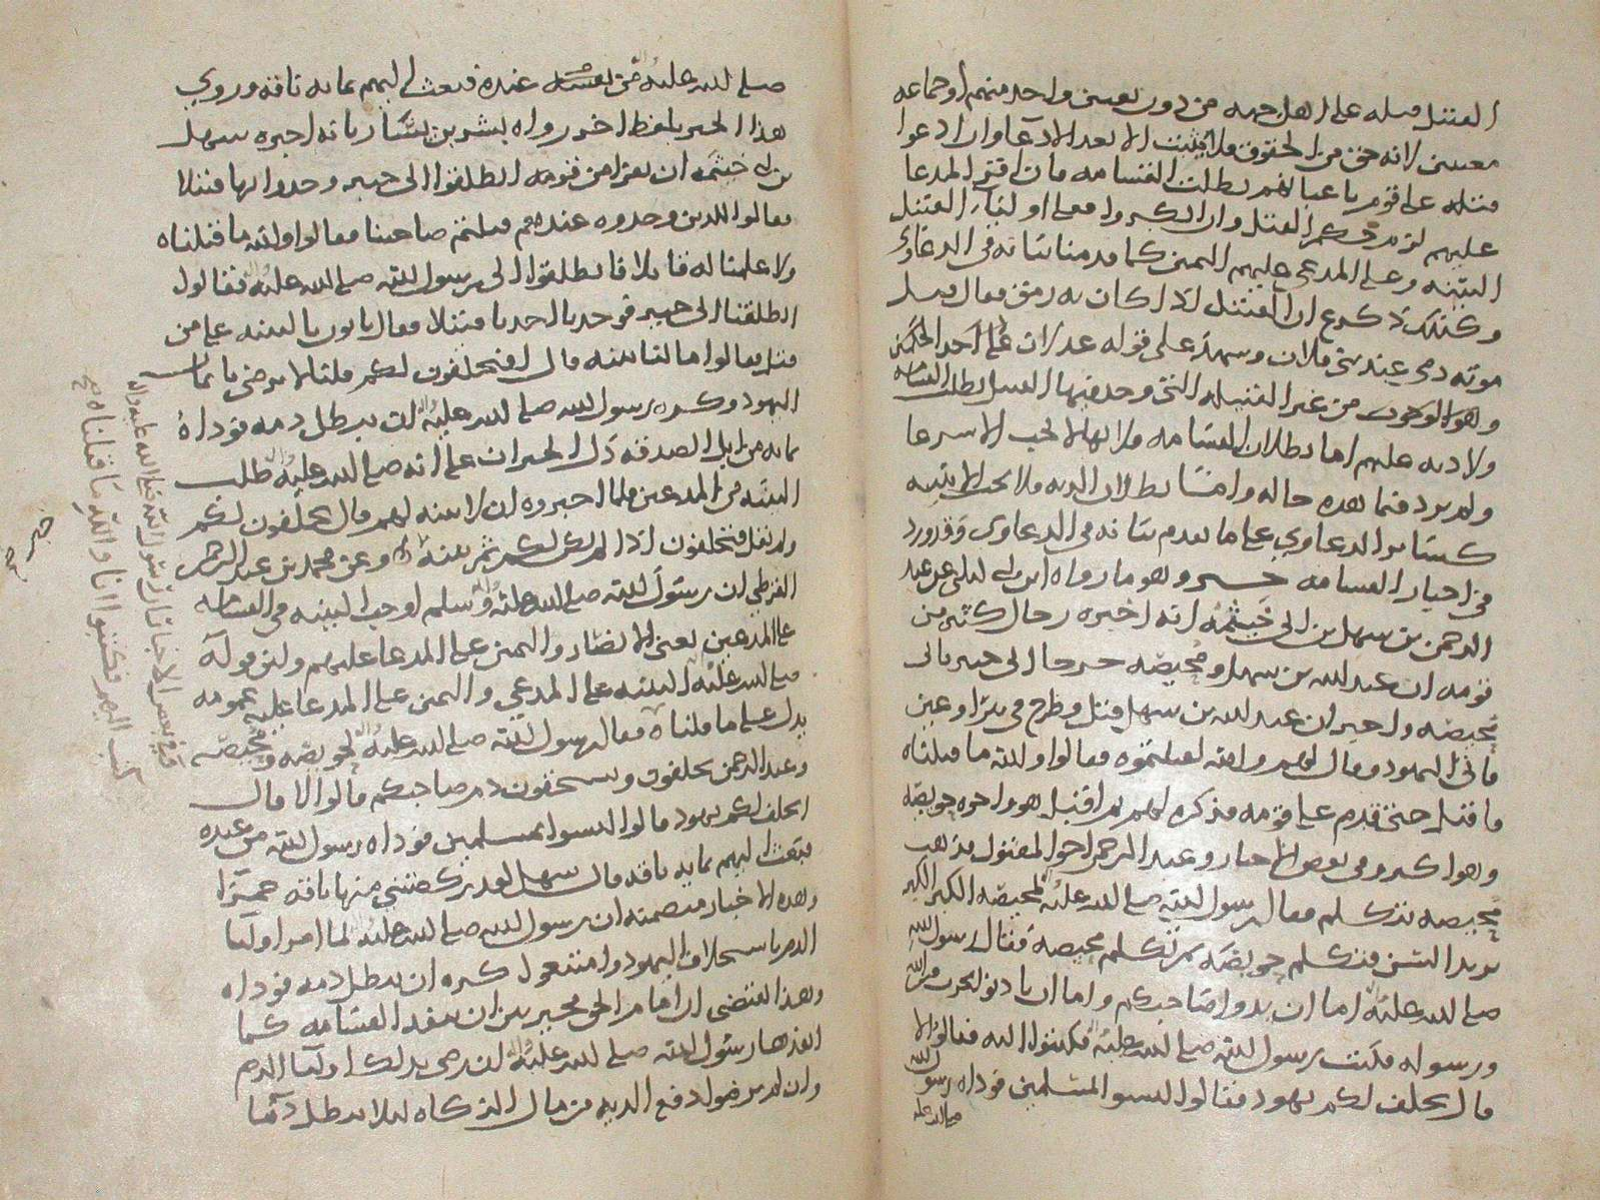 القتيل قبله على اهل جهه من دون تعيين واحد منهم او جماعه
معينين لانه حق من الحقوق فلا يثبت الا بعد الادعا وان ادعوا
قتله على قوم باعيانهم بطلت القسامه فان اقر المدعا
عليهم لزم حكم القتل وان انكروا فعلى اوليآء القتيل
البينه وعلى المدعى عليهم اليمين كما قدمنا بيانه في الدعاوى
وكذلك ذكر ع ان القتيل اذا كان به رمق فقال قبل
موته دمي عند بني فلان وشهد على قوله عدلان على احد الحكمين
وهو الوجوب من غير القبيله التي وجد فيها القتيل بطلت القسامه
ولا ديه عليهم اما بطلان القسامه فلانها لا تجب الا شرعا
ولم يرد فيما هذه حاله وامّا بطلان الديه فلا تجب الا ببينه
كسائر الدعاوي على ما تقدم بيانه في الدعاوى وقد ورد
في اخبار القسامه خبر وهو ما رواه ابن ابي ليلى عن عبد
الرحمن بن سهل بن ابي خيثمه انه اخبره رجال كثير من
قومه ان عبد الله بن سهل ومحيصه خرجا الى خيبر فاتى
محيصه واخبر ان عبد الله بن سهل قتل وطرح في بئر او عين
فاتى اليهود وقال لهم والله لقتلتموه فقالوا والله ما قتلناه
ما قتل حتى قدم على قومه فذكره لهم ثم اقبل هو واخوه حويصه
وهو اكبر وفي بعض الاخبار وعبد الرحمن اخو المقتول فذهب
محيصه تتكلم فقال رسول الله صلى الله عليه لمحيصه الكبر الكبر
يريد السن فتكلم حويصه ثم تكلم محيصه فقال رسول الله
صلى الله عليه اما ان يدوا صاحبكم واما ان ياذنوا بحرب من الله
ورسوله فكتب رسول الله صلى الله عليه فكتبوا اليه فقالوا لا
قال يحلف لكم يهود فقالوا ليسوا المسلمين فوداه رسول الله
صلى الله عليه
صلى الله عليه من عنده فبعث اليهم بمايه ناقه وروي
هذا الخبر بلفظ اخر رواه بشير بن يسار بانه اخبره سهل
بن ابي خيثمه ان نفرا من قومه انطلقوا الى خيبر وجدوا بها قتيلا
فقالوا للذين وجدوه عندهم قتلتم صاحبنا فقالوا والله ما قتلناه
ولا علمنا له قاتلا فانطلقوا الى رسول الله صلى الله عليه فقالوا
انطلقنا الى خيبر فوجدنا احدنا قتيلا فقال ياتون بالبينه على من
قتل فقالوا ما لنا بينه قال فيحلفون لكم قلنا لا نرضى بايمان
اليهود وكره رسول الله صلى الله عليه ان يبطل دمه فوداه
بمايه من ابل الصدقه دل الخبران على انه صلى الله عليه طلب
البينه من المدعين فلما اخبروه ان لا بينه لهم قال يحلفون لكم
ولم يقل فتحلفون اذا لم يكن لكم ثم بينه وعن محمد بن عبد الرحمن
القرظي ان رسول الله صلى الله عليه وسلم اوجب البينه في القسامه
على المدعين يعني الانصار واليمين على المدعا عليهم ولان قوله
صلى الله عليه البينه على المدعي واليمين على المدعا عليه عمومه
يدل على ما قلناه فقال رسول الله صلى الله عليه لحويصه ومحيصه
وعبد الرحمن تحلفون وتستحقون دم صاحبكم قالوا لا قال
اتحلف لكم يهود قالوا ليسوا بمسلمين فوداه رسول الله من عنده
فبعث اليهم بمايه ناقه قال سهل لقد ركضتني منها ناقه حمرآ
وهذه الاخبار متضمنه ان رسول الله صلى الله عليه لما امر اوليآ
الدم باستحلاف اليهود وامتنعوا كره ان يبطل دمه فوداه
وهذا يقتضي ان امام الحق مخير بين ان ينفذ القسامه كما
انفذها رسول الله صلى الله عليه ان رضي بذلك اوليآ الدم
وان لم يرضوا دفع الديه من مال الزكاه ليلا يبطل دما
قال في بعض الاخبار ان رسول الله صلى الله عليه واله
كتب اليهم فكتبوا انا والله ما قتلناه صح
خيبر